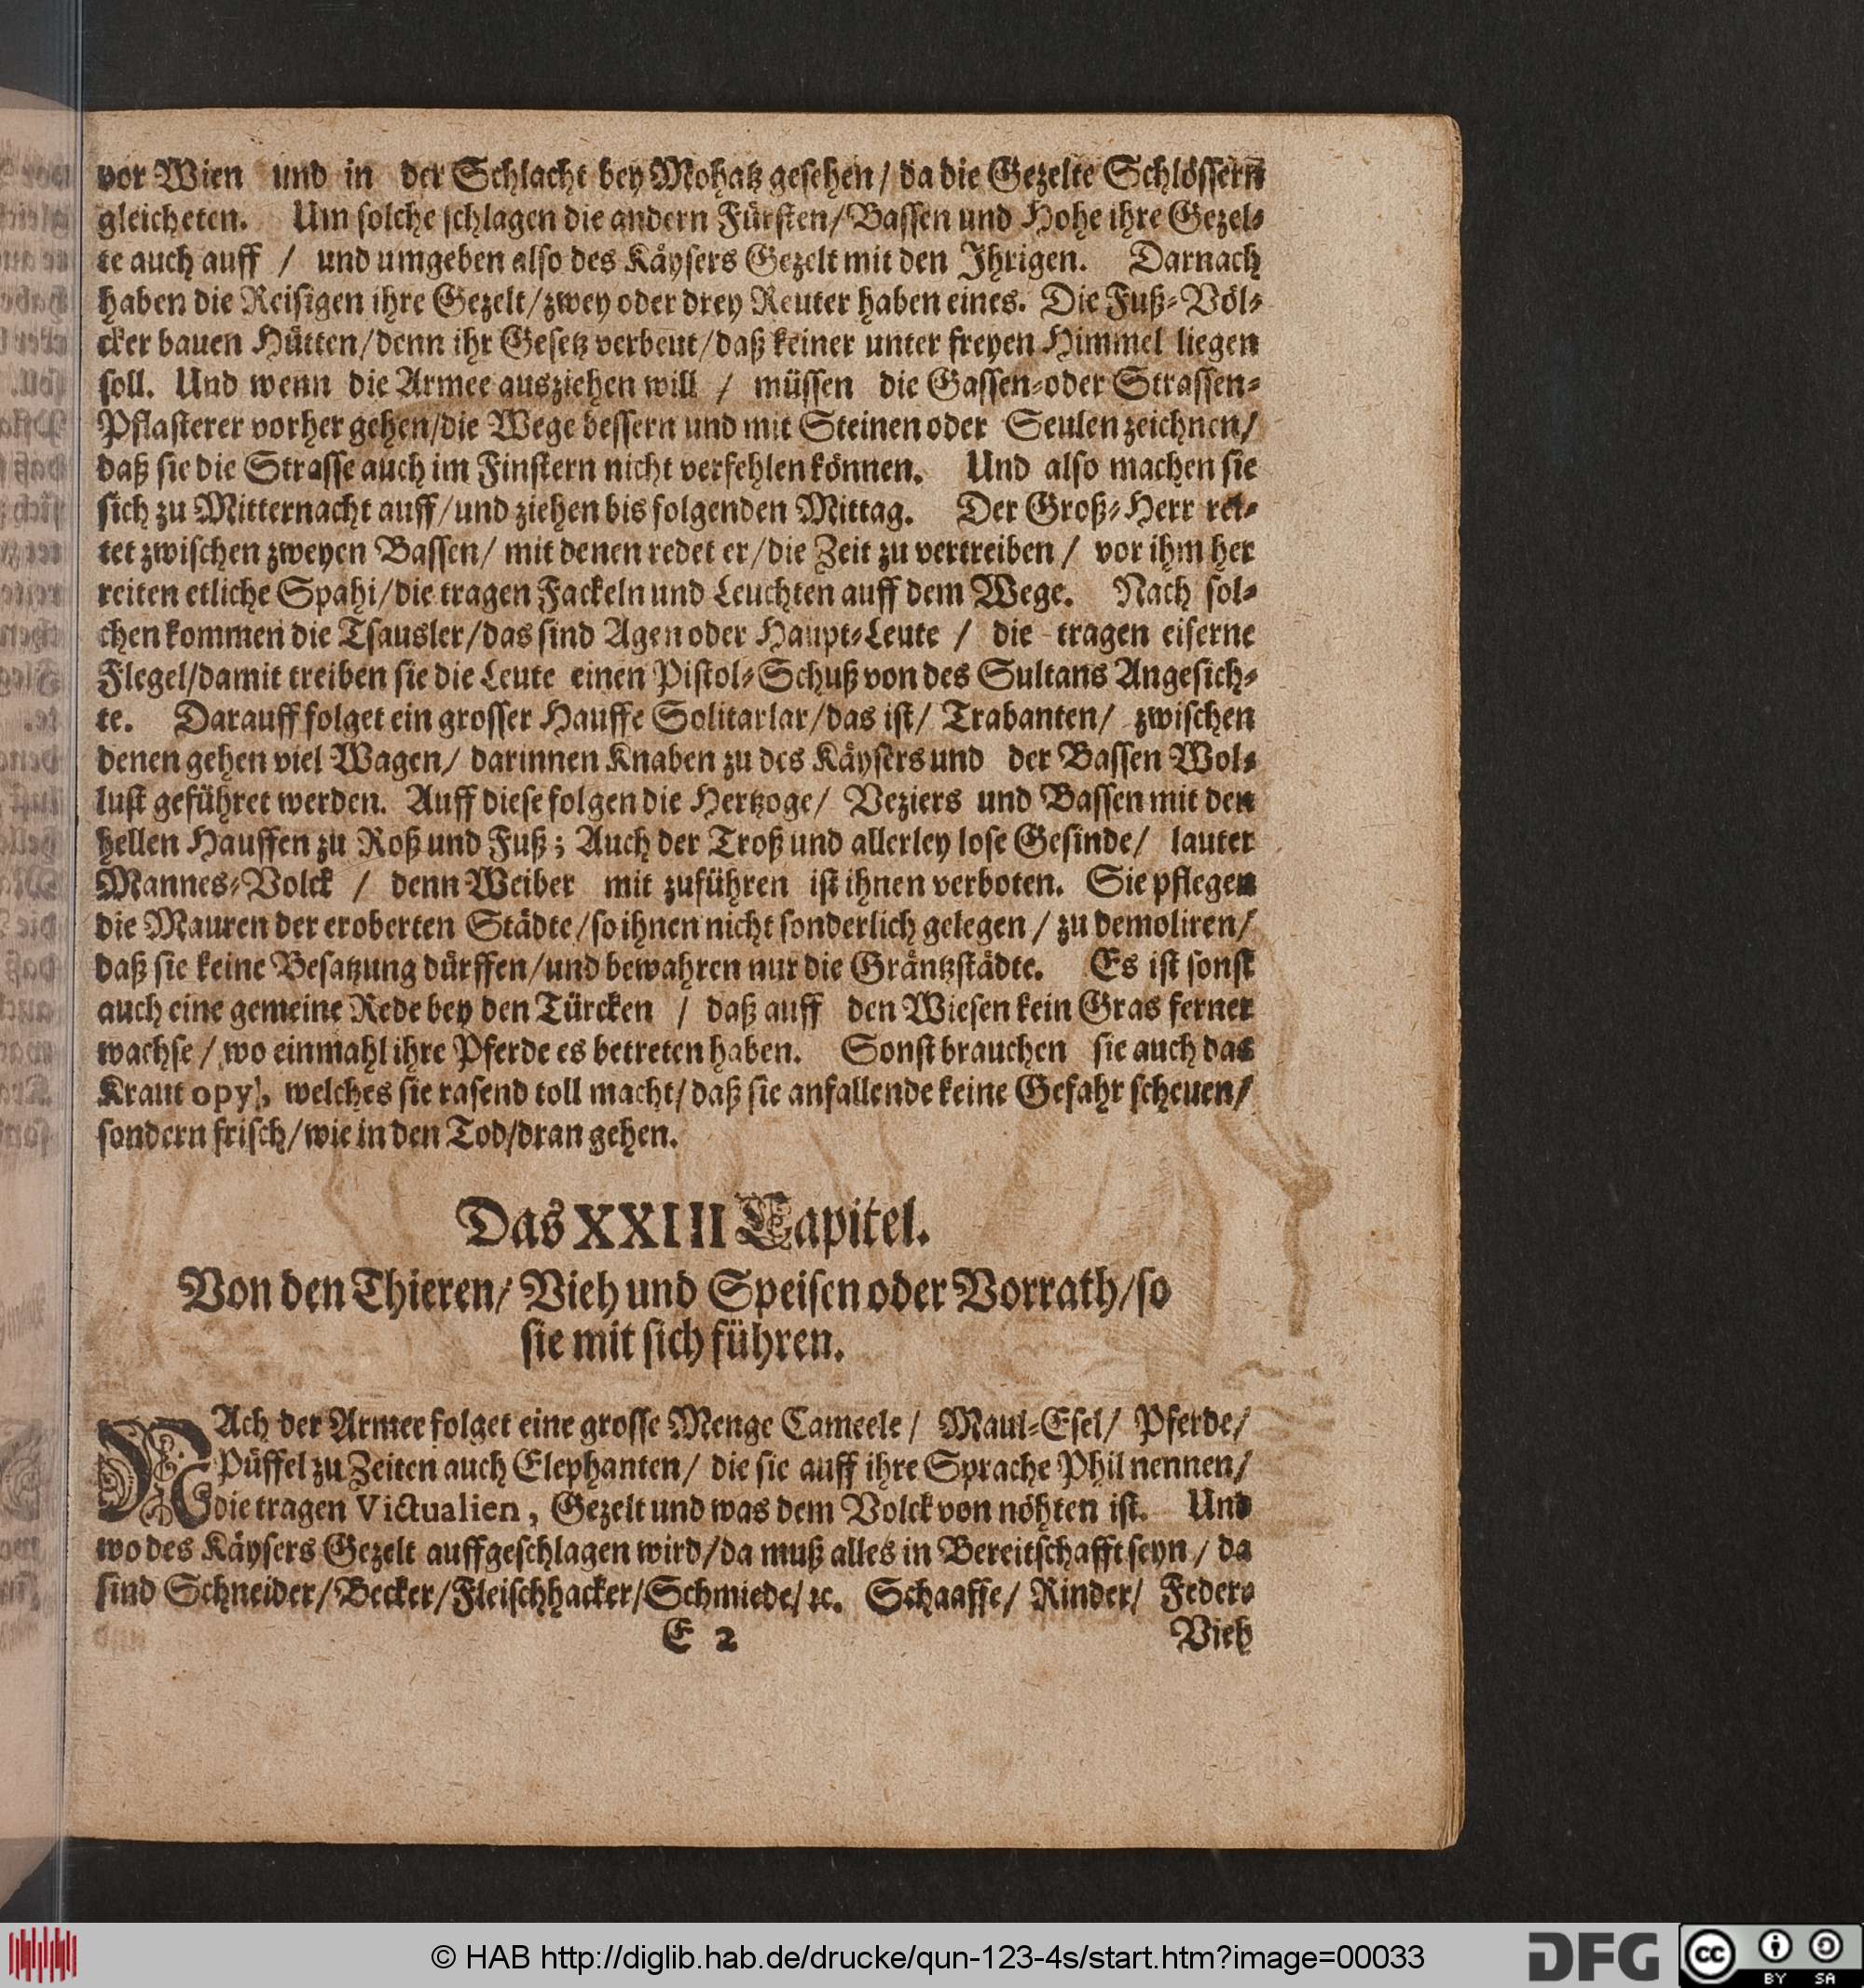 vor Wien und in der Schlacht bey Mohatz gesehen / da die Gezelte Schlössern
gleicheten. Um solche schlagen die andern Fürsten / Bassen und Hohe ihre Gezel-
te auch auff / und umgeben also des Käysers Gezelt mit den Ihrigen. Darnach
haben die Reisigen ihre Gezelt / zwey oder drey Reuter haben eines. Die Fuß-Völ-
cker bauen Hütten / denn ihr Gesetz verbeut / daß keiner unter freyen Himmel liegen
soll. Und wenn die Armee ausziehen will / müssen die Gassen-oder Strassen-
Pflasterer vorher gehen / die Wege bessern und mit Steinen oder Seulen zeichnen /
daß sie die Strasse auch im Finstern nicht verfehlen können. Und also machen sie
sich zu Mitternacht auff / und ziehen bis folgenden Mittag. Der Groß-Herr rei-
tet zwischen zweyen Bassen / mit denen redet er / die Zeit zu vertreiben / vor ihm her
reiten etliche Spahi / die tragen Fackeln und Leuchten auff dem Wege. Nach sol-
chen kommen die Tsausler / das sind Agen oder Haupt-Leute / die tragen eiserne
Flegel / damit treiben sie die Leute einen Pistol-Schuß von des Sultans Angesich-
te. Darauff folget ein grosser Hauffe Solitarlar / das ist / Trabanten / zwischen
denen gehen viel Wagen / darinnen Knaben zu des Käysers und der Bassen Wol-
lust geführet werden. Auff diese folgen die Hertzoge / Veziers und Bassen mit den
hellen Hauffen zu Roß und Fuß; Auch der Troß und allerley lose Gesinde / lauter
Mannes-Volck / denn Weiber mit zuführen ist ihnen verboten. Sie pflegen
die Mauren der eroberten Städte / so ihnen nicht sonderlich gelegen / zu demoliren /
daß sie keine Besatzung dürffen / und bewahren nur die Gräntzstädte. Es ist sonst
auch eine gemeine Rede bey den Türcken / daß auff den Wiesen kein Gras ferner
wachse / wo einmahl ihre Pferde es betreten haben. Sonst brauchen sie auch das
Kraut opyl, welches sie rasend toll macht / daß sie anfallende keine Gefahr scheuen /
sondern frisch / wie in den Tod / dran gehen.
Das XXIII Capitel.
Von den Thieren / Vieh und Speisen oder Vorrath / so
sie mit sich führen.
NAch der Armee folget eine grosse Menge Cameele / Maul-Esel / Pferde /
Püffel zu Zeiten auch Elephanten / die sie auff ihre Sprache Phil nennen /
die tragen Victualien, Gezelt und was dem Volck von nöhten ist. Und
wo des Käysers Gezelt auffgeschlagen wird / da muß alles in Bereitschafft seyn / da
sind Schneider / Becker / Fleischhacker / Schmiede / ꝛc. Schaaffe / Rinder / Feder-
E 2 Vieh
© HAB http://diglib.hab.de/drucke/qun-123-4s/start.htm?image=00033
DFG
cc BY SA